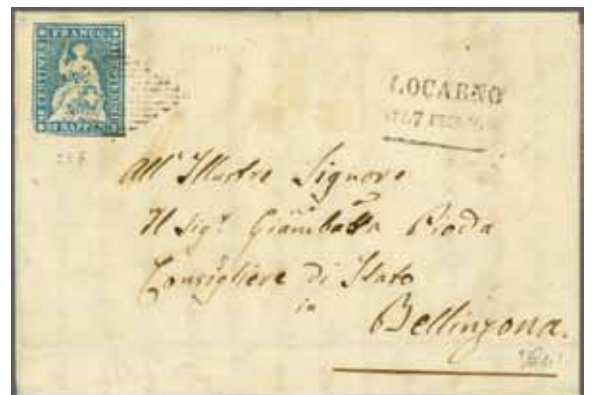 FRANCO
LOCARNO
All' Illustre Signore
Il Sigr Giambatta Pioda
Consigliere di Stato
in
Bellinzona.